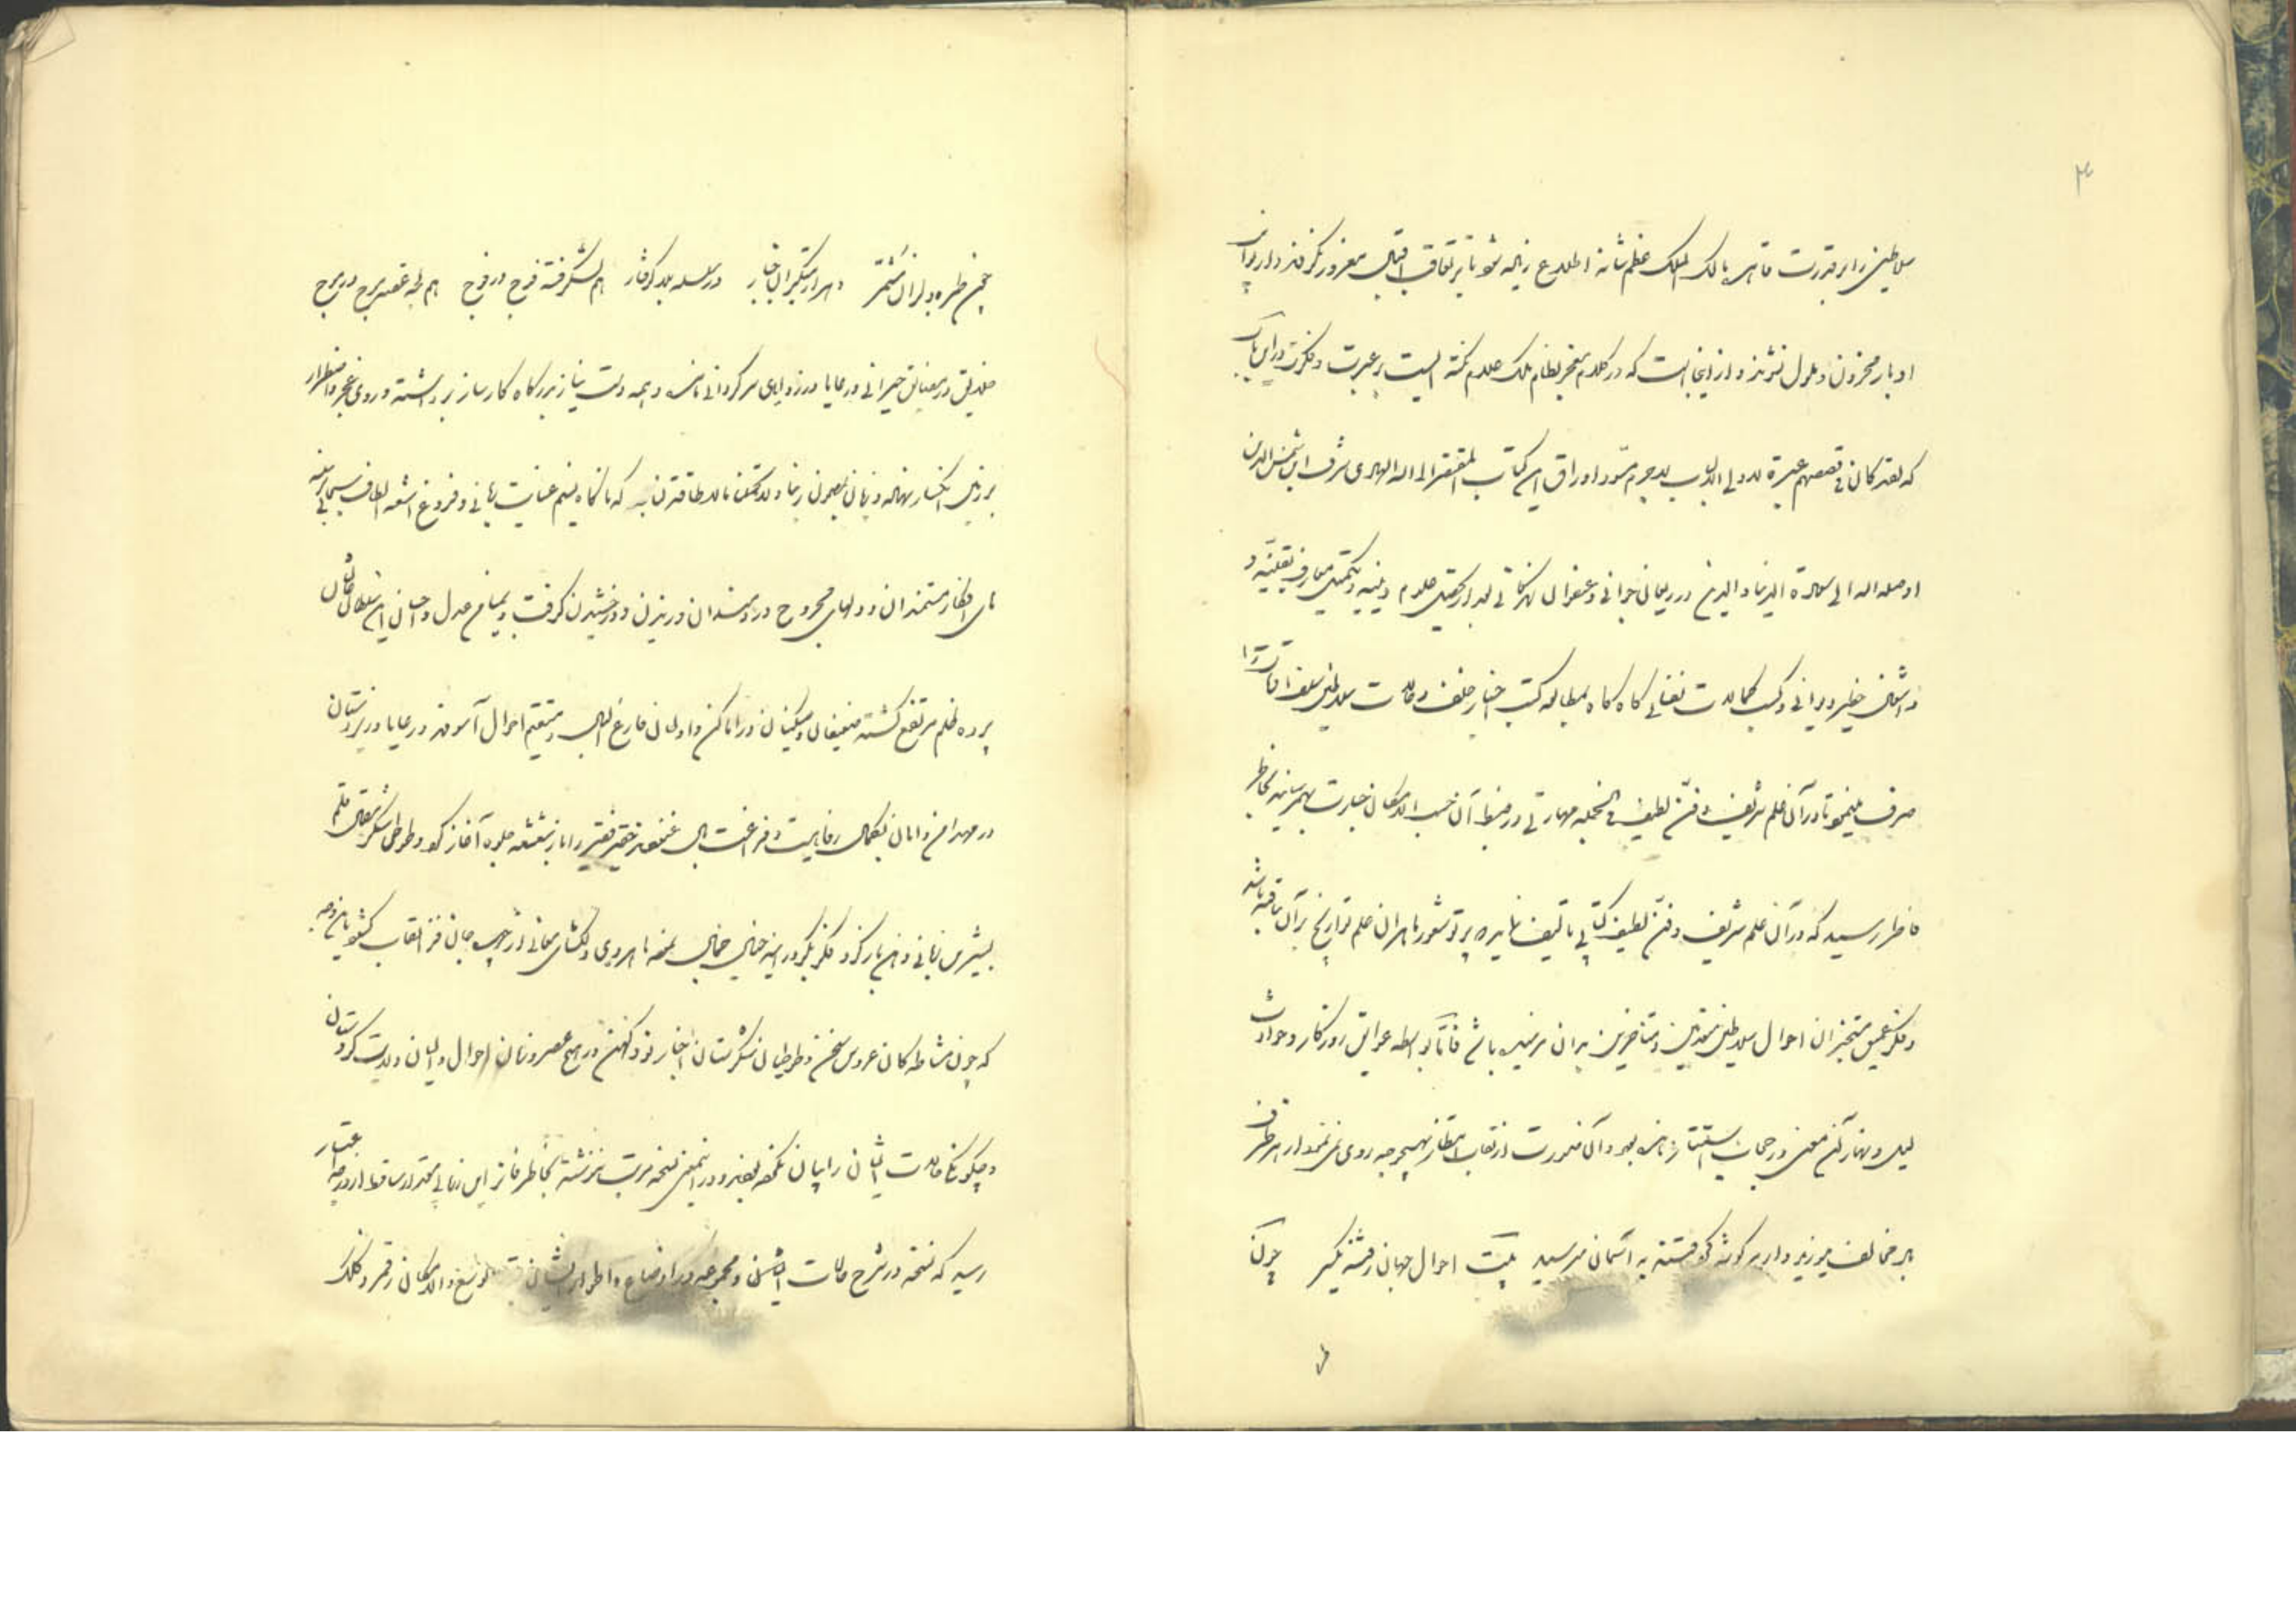 ۳
سلاطین را بر قدرت قاهره مالک الملک عظم شانه اطلاع زیاده شود تا بر تعاقب اقبال مغرور نگردند و از توالی
ادبار محزون و ملول نشوند و از اینجاست که در کلام معجز نظام ملک علام نکته ایست بر عبرت و فکرت ورای پاک
که لقد کان فی قصصهم عبرة لاولی الالباب لاجرم مسود اوراق این کتاب المفتقر الی الله الهادی شرف ابن شمس الدین
اوصله الله الی سعادة الدنیا و الدین در ریعان جوانی و عنفوان زندگانی بعد از تحصیل علوم دینیه و تکمیل معارف یقینیه و
کسب کمالات نفسانی گاه گاه بمطالعه کتب اخبار خلف و حالات سلاطین سلف اوقات را
صرف مینمود تا در آن علم شریف و فن لطیف فی الجمله مهارتی و در ضبط آن حسب الامکان جسارت بهم رسانید بخاطر
خاطر رسید که در آن علم شریف و فن لطیف کتابی تالیف نماید که پرتو شعور ماهران علم تواریخ بر آن نتافته باشد
و فکر عمیق متخبران احوال سلاطین متقدمین و متاخرین بدان نرسیده باشد فاما بواسطه عوایق روزگار و حوادث
لیل و نهار آن معنی در حجاب استتار مانده بود و آن ضرورت از نقاب انتظار بهیچوجه روی نمی نمود از هر طرف
باد مخالف میوزید و از هر گوشه گرد فتنه به آسمان میرسید بیت احوال جهان رفته نگیر چون
چین طره دلبران مشمر و هزار متکبران جبار در سلسله بلا گرفتار هم لشکر فتنه فوج در فوج هم لجه غصه موج در موج
خلایق در مضایق حیرانی و رعایا در زوایای سرگردانی مانده و همه دست نیاز بدرگاه کارساز برداشته و روی عجز و اضطرار
بر زمین انکسار نهاده و زبان بمضمون ربنا ولا تحملنا ما لا طاقة لنا به که ناگاه نسیم عنایت ربانی و فروغ اشعه الطاف سبحانی
های افکار مستمندان و دلهای مجروح دردمندان وزیدن و درخشیدن گرفت و بمیامن عدل و احسان این سلطان
پرده ظلم مرتفع گشته ضعیفان و مسکینان در اماکن و اوطان فارغ البال و مستقیم احوال آسودند و رعایا و زیردستان
در مهد امن و امان بکمال رفاهیت و فراغت بال غنودند حقیر فقیر را باز شعشعه جلوه آغاز کرد و طوطی شکر مقال قلم
بشیرین زبانی دهن باز کرد و فکر بکر در آینه خیال جمال بنمود ماهروی دلگشای معانی از چهره جان فزا نقاب گشود باین وجه
که چون مشاطه کان عروس سخن و طوطیان شکرستان اخبار نو و کهن در هیچ عصر و زمان احوال والیان ولایت کردستان
و چگونگی حالات ایشان را بیان نکرده بودند و در اینمعنی نسخه مرتب ننوشته بخاطر فاتر این بی مقدار ساقط از درجه اعتبار
رسید که نسخه در شرح حالات ایشان و مجموعه در اوضاع و اطوار ایشان بقدر الوسع و الامکان رقمزد کلک